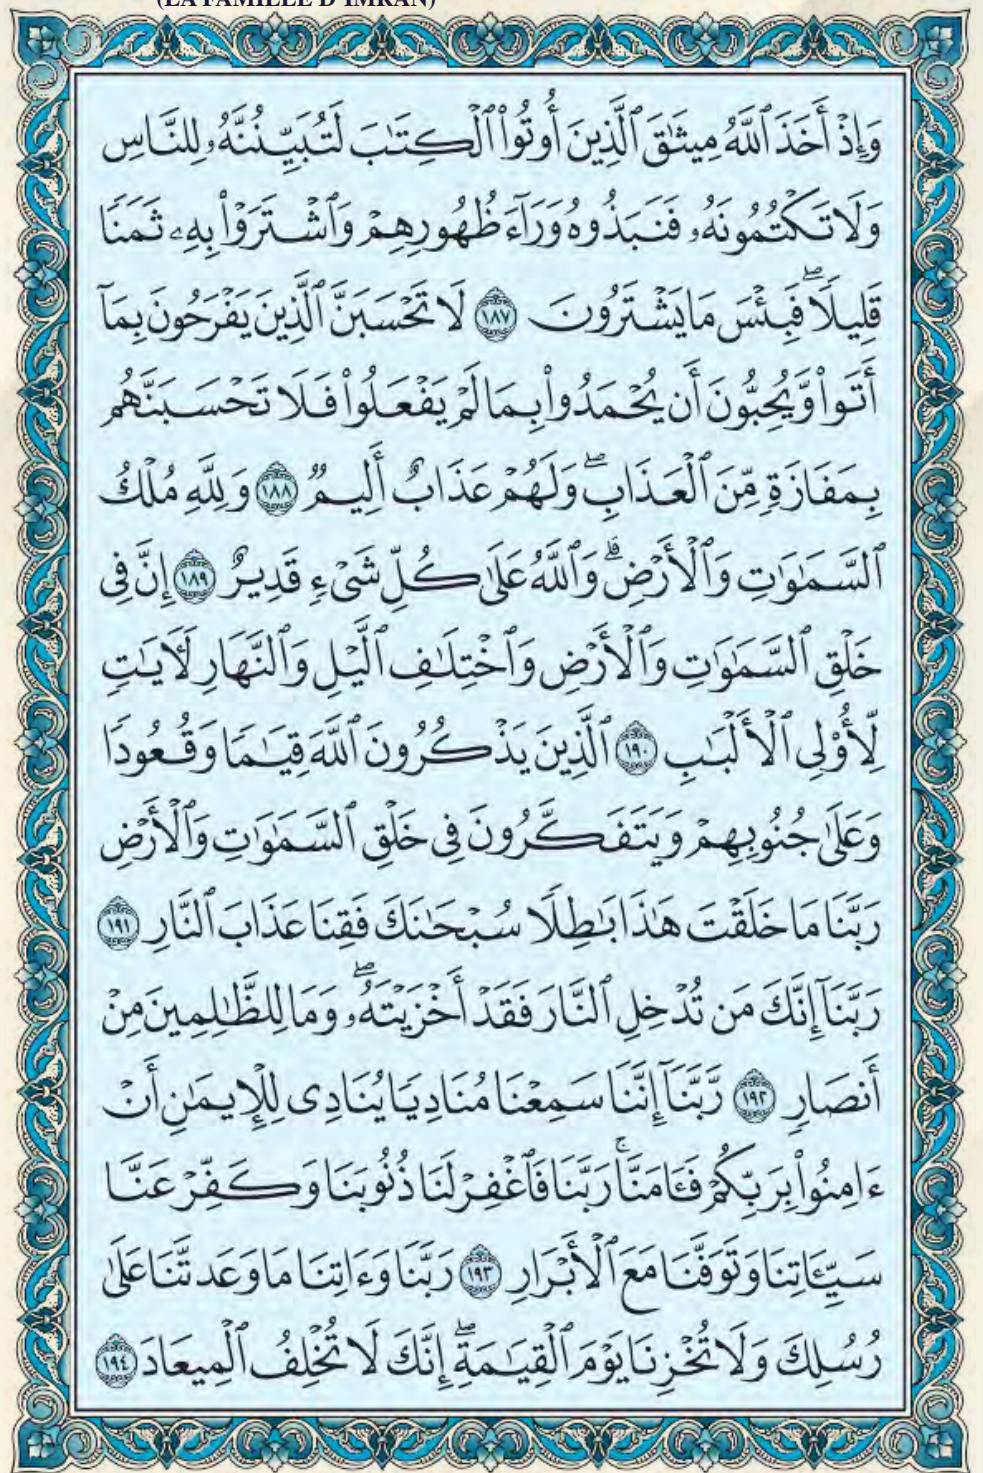 (LA FAMILLE D'IMRAN)
وَإِذْ أَخَذَ ٱللَّهُ مِيثَٰقَ ٱلَّذِينَ أُوتُوا۟ ٱلْكِتَٰبَ لَتُبَيِّنُنَّهُۥ لِلنَّاسِ
وَلَا تَكْتُمُونَهُۥ فَنَبَذُوهُ وَرَآءَ ظُهُورِهِمْ وَٱشْتَرَوْا۟ بِهِۦ ثَمَنًا
قَلِيلًا ۖ فَبِئْسَ مَا يَشْتَرُونَ ١٨٧ لَا تَحْسَبَنَّ ٱلَّذِينَ يَفْرَحُونَ بِمَآ
أَتَوا۟ وَّيُحِبُّونَ أَن يُحْمَدُوا۟ بِمَا لَمْ يَفْعَلُوا۟ فَلَا تَحْسَبَنَّهُم
بِمَفَازَةٍ مِّنَ ٱلْعَذَابِ ۖ وَلَهُمْ عَذَابٌ أَلِيمٌ ١٨٨ وَلِلَّهِ مُلْكُ
ٱلسَّمَٰوَٰتِ وَٱلْأَرْضِ ۗ وَٱللَّهُ عَلَىٰ كُلِّ شَىْءٍ قَدِيرٌ ١٨٩ إِنَّ فِى
خَلْقِ ٱلسَّمَٰوَٰتِ وَٱلْأَرْضِ وَٱخْتِلَٰفِ ٱلَّيْلِ وَٱلنَّهَارِ لَءَايَٰتٍ
لِّأُو۟لِى ٱلْأَلْبَٰبِ ١٩٠ ٱلَّذِينَ يَذْكُرُونَ ٱللَّهَ قِيَٰمًا وَقُعُودًا
وَعَلَىٰ جُنُوبِهِمْ وَيَتَفَكَّرُونَ فِى خَلْقِ ٱلسَّمَٰوَٰتِ وَٱلْأَرْضِ
رَبَّنَا مَا خَلَقْتَ هَٰذَا بَٰطِلًا سُبْحَٰنَكَ فَقِنَا عَذَابَ ٱلنَّارِ ١٩١
رَبَّنَآ إِنَّكَ مَن تُدْخِلِ ٱلنَّارَ فَقَدْ أَخْزَيْتَهُۥ ۖ وَمَا لِلظَّٰلِمِينَ مِنْ
أَنصَارٍ ١٩٢ رَّبَّنَآ إِنَّنَا سَمِعْنَا مُنَادِيًا يُنَادِى لِلْإِيمَٰنِ أَنْ
ءَامِنُوا۟ بِرَبِّكُمْ فَـَٔامَنَّا ۚ رَبَّنَا فَٱغْفِرْ لَنَا ذُنُوبَنَا وَكَفِّرْ عَنَّا
سَيِّـَٔاتِنَا وَتَوَفَّنَا مَعَ ٱلْأَبْرَارِ ١٩٣ رَبَّنَا وَءَاتِنَا مَا وَعَدتَّنَا عَلَىٰ
رُسُلِكَ وَلَا تُخْزِنَا يَوْمَ ٱلْقِيَٰمَةِ ۖ إِنَّكَ لَا تُخْلِفُ ٱلْمِيعَادَ ١٩٤